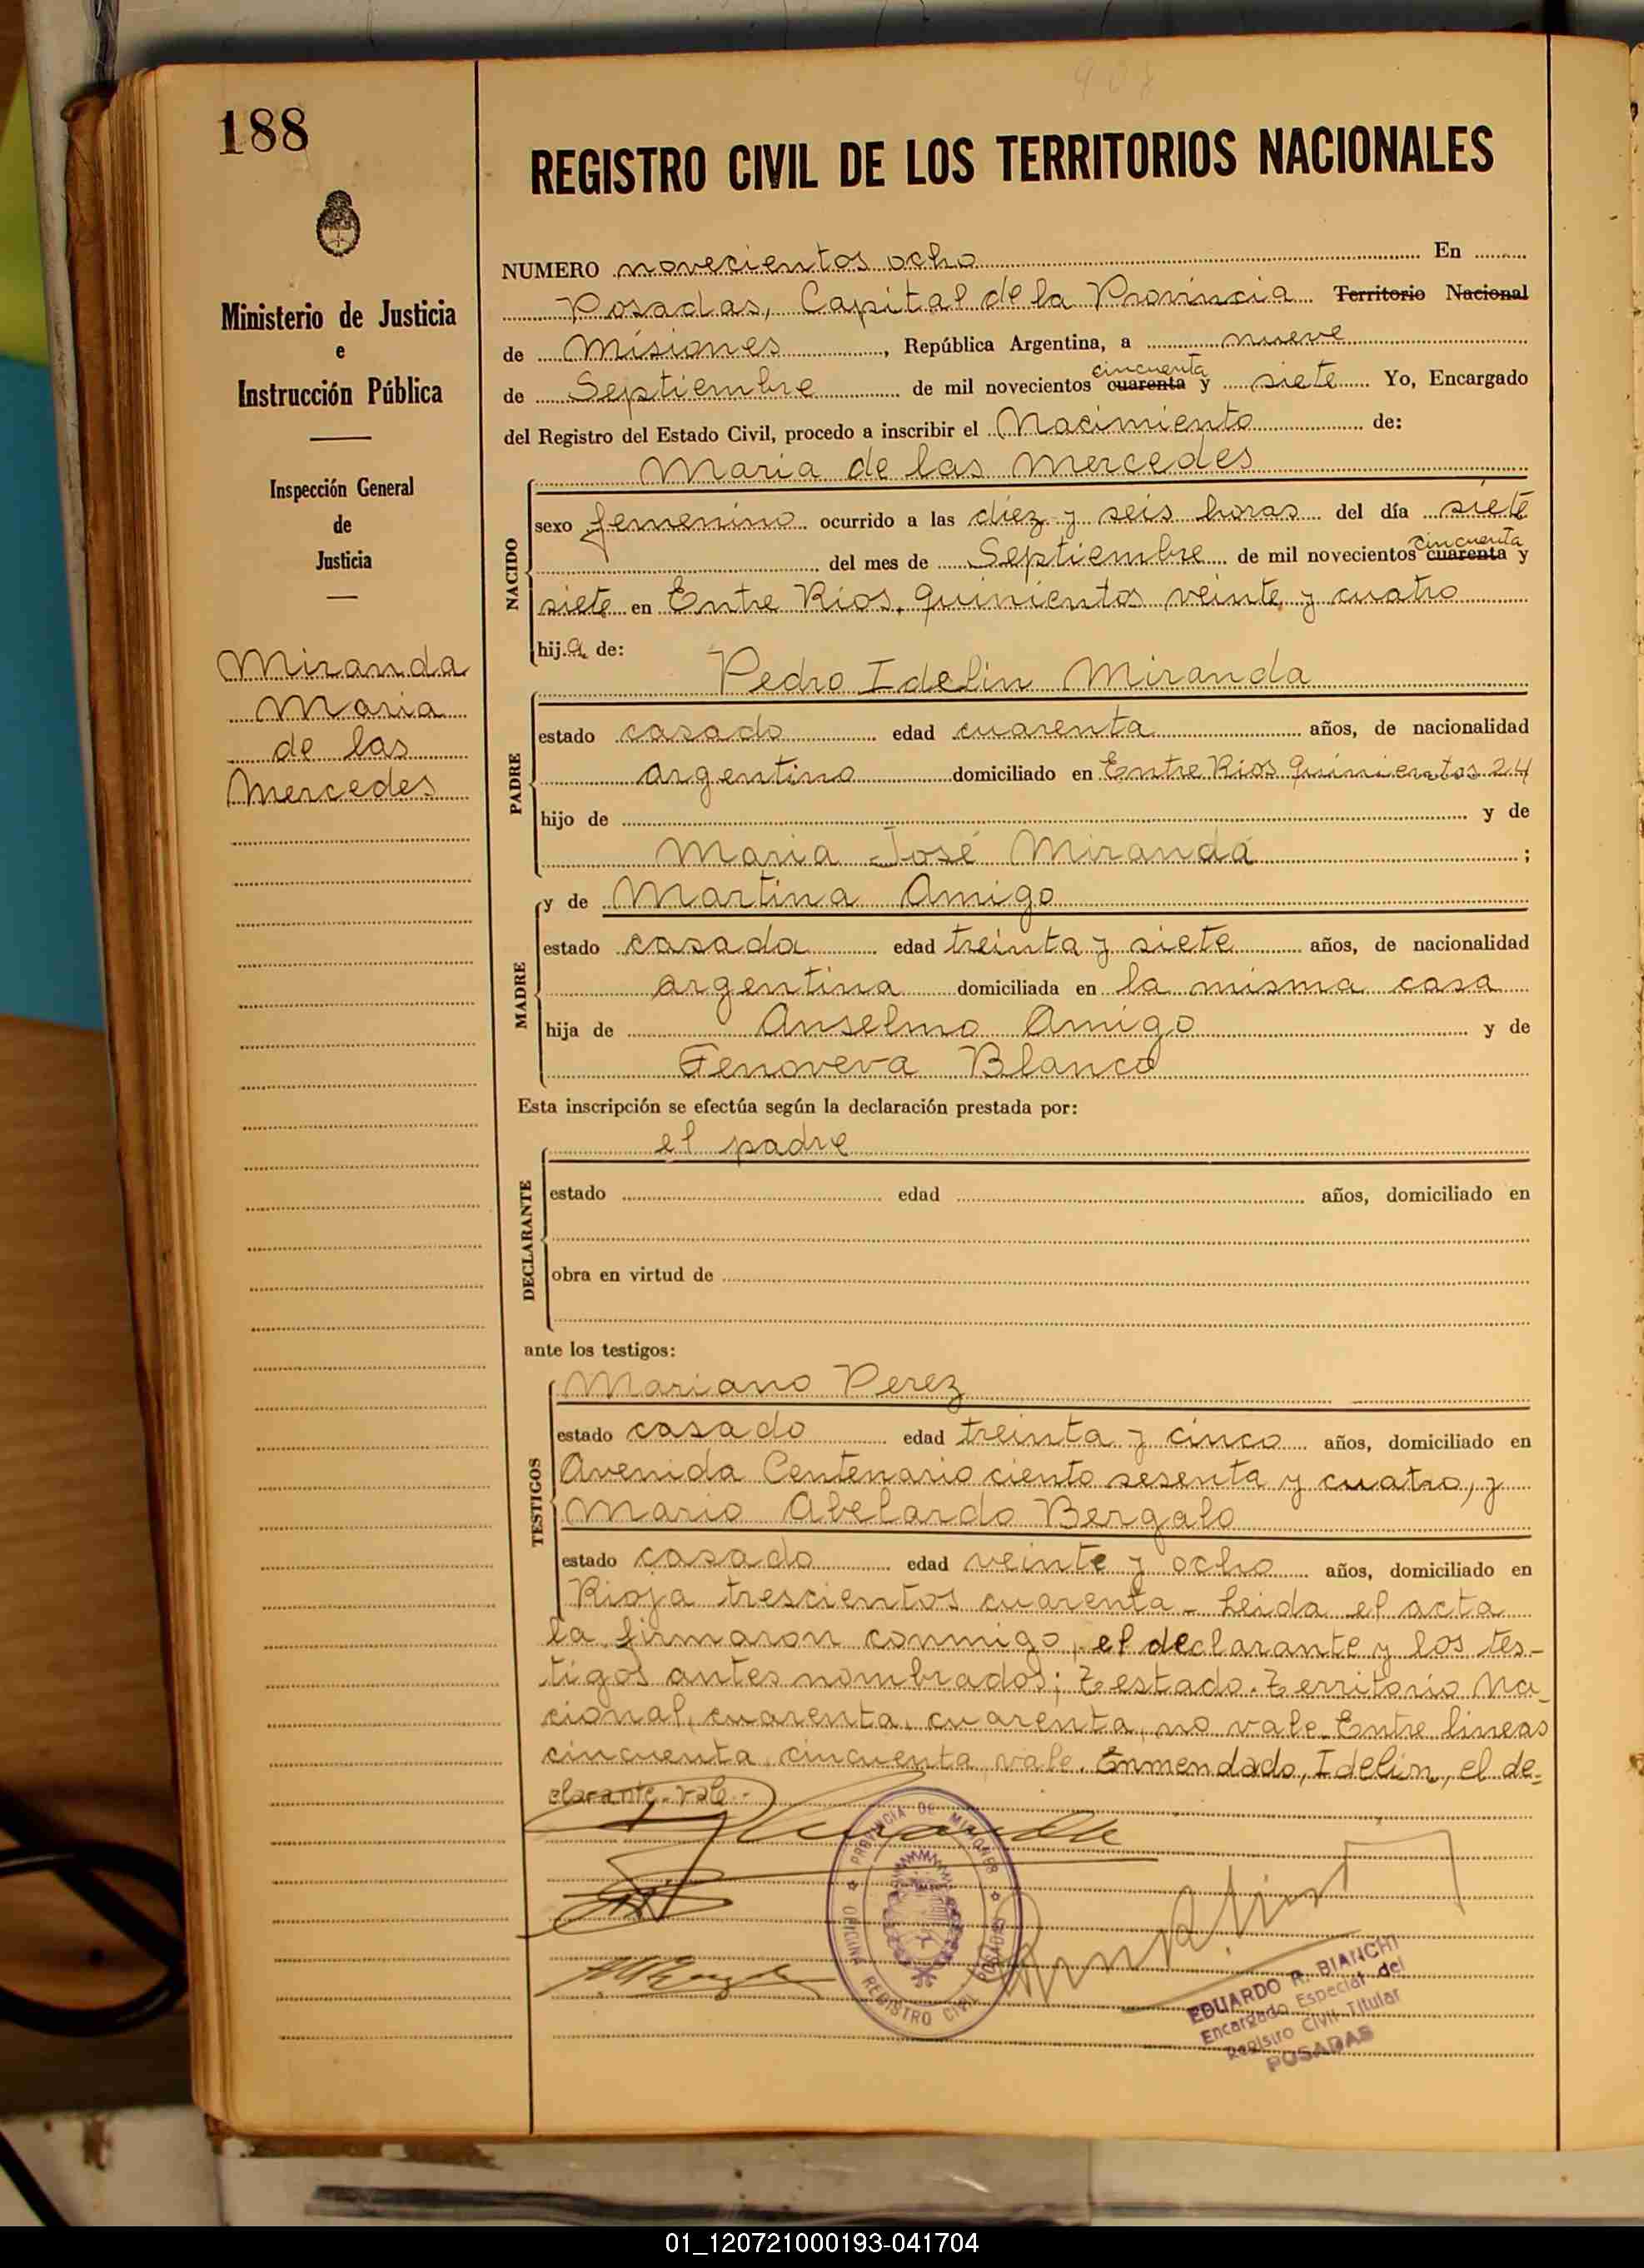 908
188
REGISTRO CIVIL DE LOS TERRITORIOS NACIONALES
Ministerio de Justicia
e
Instrucción Pública
Inspección General
de
Justicia
Miranda
Maria
de las
Mercedes
NUMERO novecientos ocho En
Posadas, Capital de la Provincia Territorio Nacional
de Misiones, República Argentina, a nueve
cincuenta
de Septiembre de mil novecientos cuarenta y siete Yo, Encargado
del Registro del Estado Civil, procedo a inscribir el Nacimiento de:
Maria de las Mercedes
NACIDO
sexo femenino ocurrido a las diez y seis horas del día siete
cincuenta
del mes de Septiembre de mil novecientos cuarenta y
siete en Entre Rios, quinientos veinte y cuatro
hija de:
Pedro Idelin Miranda
PADRE
estado casado edad cuarenta años, de nacionalidad
argentino domiciliado en Entre Rios quinientos 24
hijo de y de
Maria José Miranda ;
MADRE
y de Martina Amigo
estado casada edad treinta y siete años, de nacionalidad
argentina domiciliada en la misma casa
hija de Anselmo Amigo y de
Genoveva Blanco
Esta inscripción se efectúa según la declaración prestada por:
el padre
DECLARANTE
estado edad años, domiciliado en
obra en virtud de
ante los testigos:
TESTIGOS
Mariano Perez
estado casado edad treinta y cinco años, domiciliado en
Avenida Centenario ciento sesenta y cuatro, y
Mario Abelardo Bergalo
estado casado edad veinte y ocho años, domiciliado en
Rioja trescientos cuarenta - Leida el acta
la firmaron conmigo, el declarante y los tes-
tigos antes nombrados; Testado. Territorio Na-
cional, cuarenta, cuarenta, no vale. Entre lineas
cincuenta, cincuenta, vale. Enmendado, Idelin, el de-
clarante. vale.-
PROVINCIA DE MISIONES
OFICINA REGISTRO CIVIL POSADAS
EDUARDO R. BIANCHI
Encargado Especial del
Registro Civil Titular
POSADAS
01_120721000193-041704